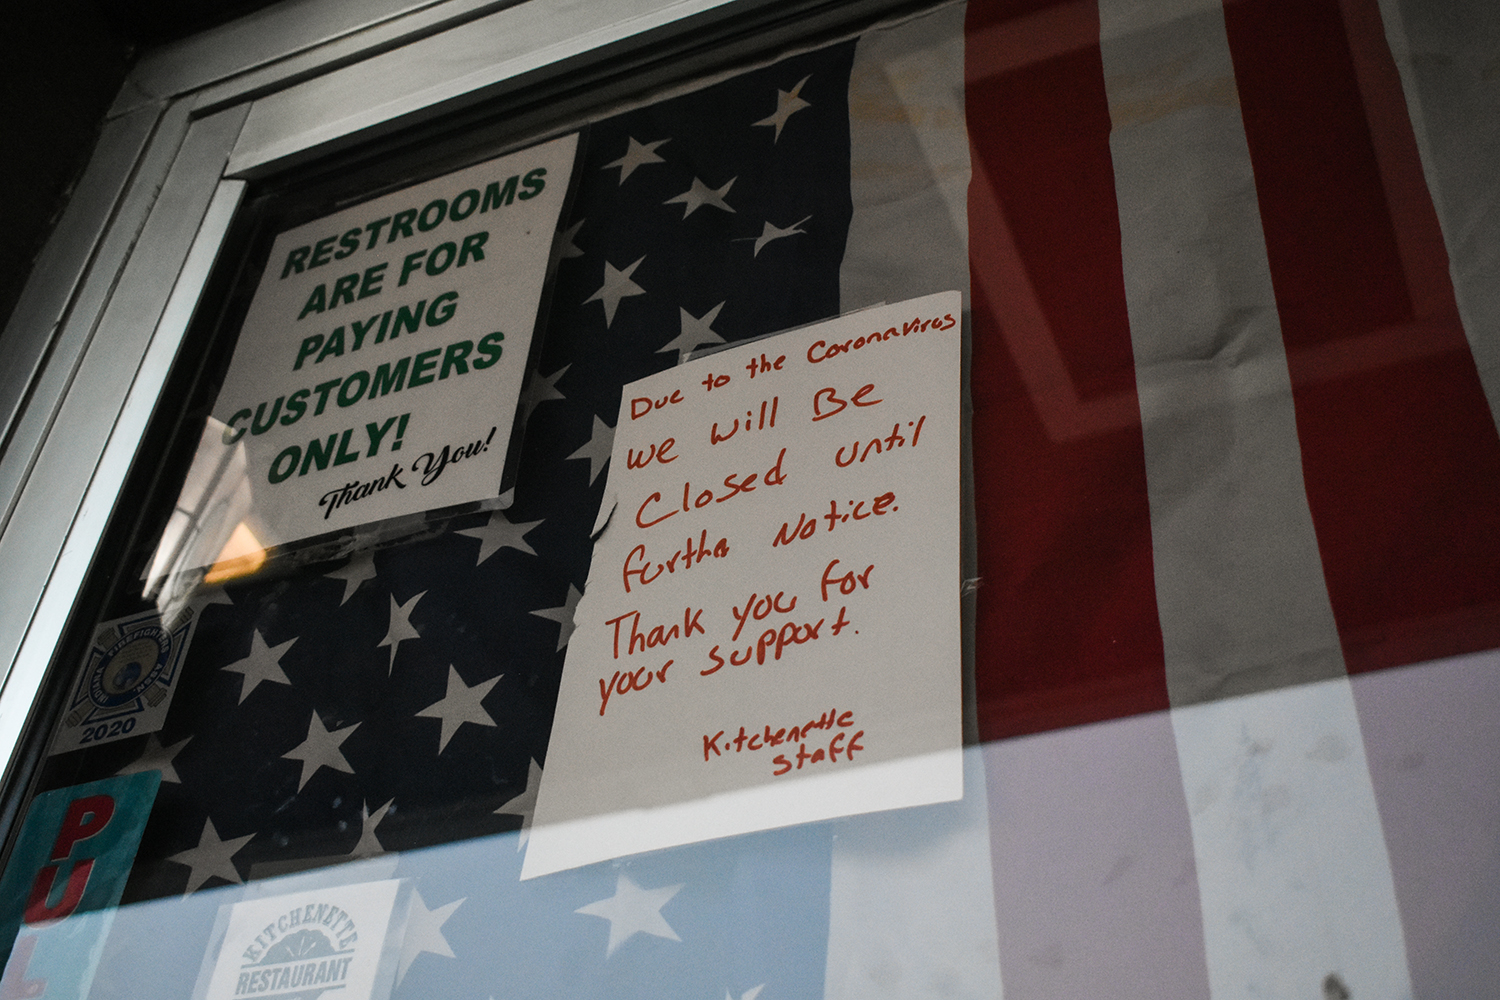 RESTROOMS
ARE FOR
PAYING
CUSTOMERS
ONLY!
Thank You!
Due to the Coronavirus
we will Be
Closed until
furthr Notice.
Thank you for
your support.
Kitchenette
staff
INDIANA FIREFIGHTERS ASSN.
2020
PUL
KITCHENETTE
RESTAURANT